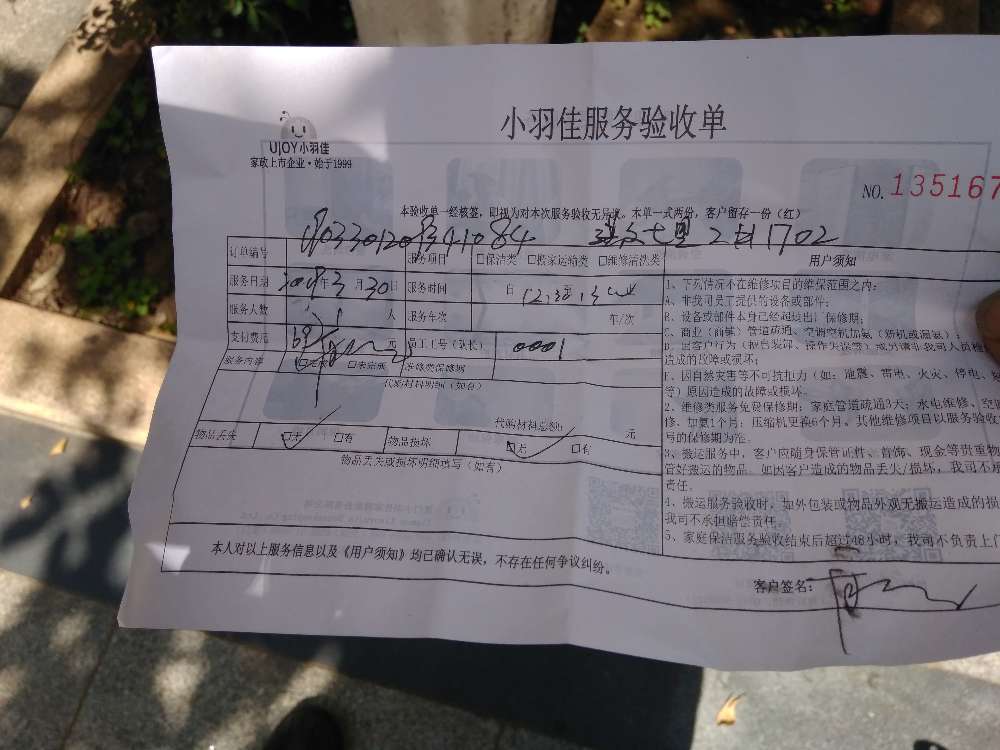 小羽佳服务验收单
UJOY小羽佳
家政上市企业·始于1999
NO. 135167
本验收单一经核签，即视为对本次服务验收无异议。本单一式两份，客户留存一份（红）
2在1702
订单编号
服务项目 □保洁类 □搬家运输类 □维修清洗类
用户须知
服务日期 年3月30日 服务时间
服务人数 1 人 服务车次 车/次
支付费用 元 员工工号（队长） 0001
服务内容 □未完成 维修类保修期
代购材料明细（如有）
代购材料总额 元
物品丢失 □无 □有 物品损坏 □无 □有
物品丢失或损坏明细填写（如有）
1、下列情况不在维修项目的维保范围之内：
A、非我司员工提供的设备或部件；
B、设备或部件本身已经超过出厂保修期；
C、商业（商铺）管道疏通、空调空机加氨（新机或漏氨）；
造成的故障或损坏；
F、因自然灾害等不可抗拒力（如：地震、雷电、火灾、停电、
等）原因造成的故障或损坏。
2、维修类服务免费保修期：家庭管道疏通3天；水电维修、空
修、加氨1个月；压缩机更换6个月。其他维修项目以服务验收
写的保修期为准。
3、搬运服务中，客户应随身保管证件、首饰、现金等贵重物
管好搬运的物品。如因客户造成的物品丢失/损坏，我司不承
责任。
4、搬运服务验收时，如外包装或物品外观无搬运造成的损
我司不承担赔偿责任。
5、家庭保洁服务验收结束后超过48小时，我司不负责上门
本人对以上服务信息以及《用户须知》均已确认无误，不存在任何争议纠纷。
客户签名：